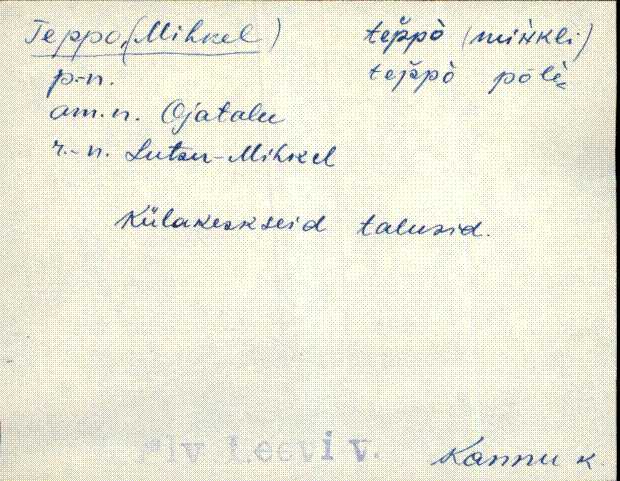 Teppo, (Mihkel) teppò (mihkli)
p.-n. teppò pōlè
am.n. Ojatalu
r.-n. Lutsu-Mihkel
Külakeskseid talusid.
Plv Leevi v. Kannu k.